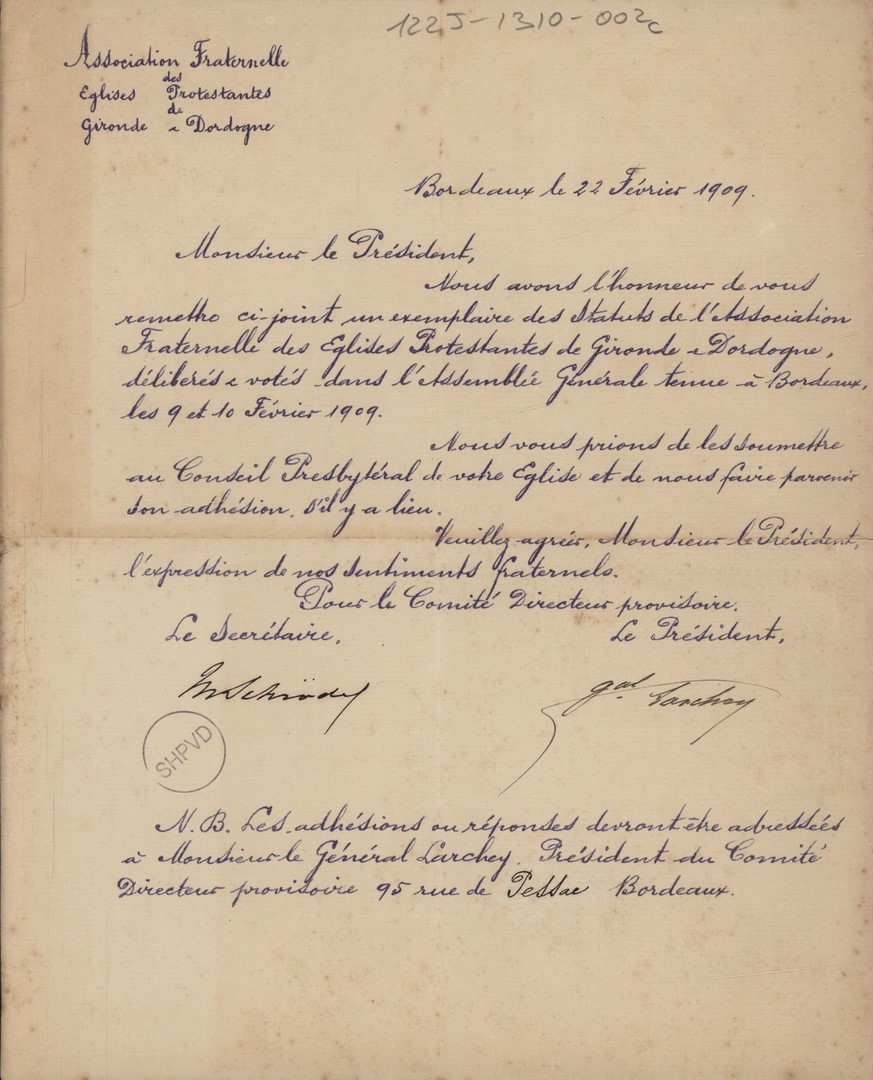 122J-1310-002c
Association Fraternelle
des
Eglises Protestantes
de
Gironde & Dordogne
Bordeaux le 22 Février 1909.
Monsieur le Président,
Nous avons l'honneur de vous
remettre ci-joint un exemplaire des Statuts de l'Association
Fraternelle des Eglises Protestantes de Gironde & Dordogne,
délibérés & votés dans l'Assemblée Générale tenue à Bordeaux,
les 9 et 10 Février 1909.
Nous vous prions de les soumettre
au Conseil Presbytéral de votre Eglise et de nous faire parvenir
son adhésion, s'il y a lieu.
Veuillez agréer, Monsieur le Président,
l'expression de nos sentiments fraternels.
Pour le Comité Directeur provisoire.
Le Secrétaire,
Le Président,
Gal Larchey
SHPVD
N. B. Les adhésions ou réponses devront être adressées
à Monsieur le Général Larchey, Président du Comité
Directeur provisoire 95 rue de Pessac Bordeaux.